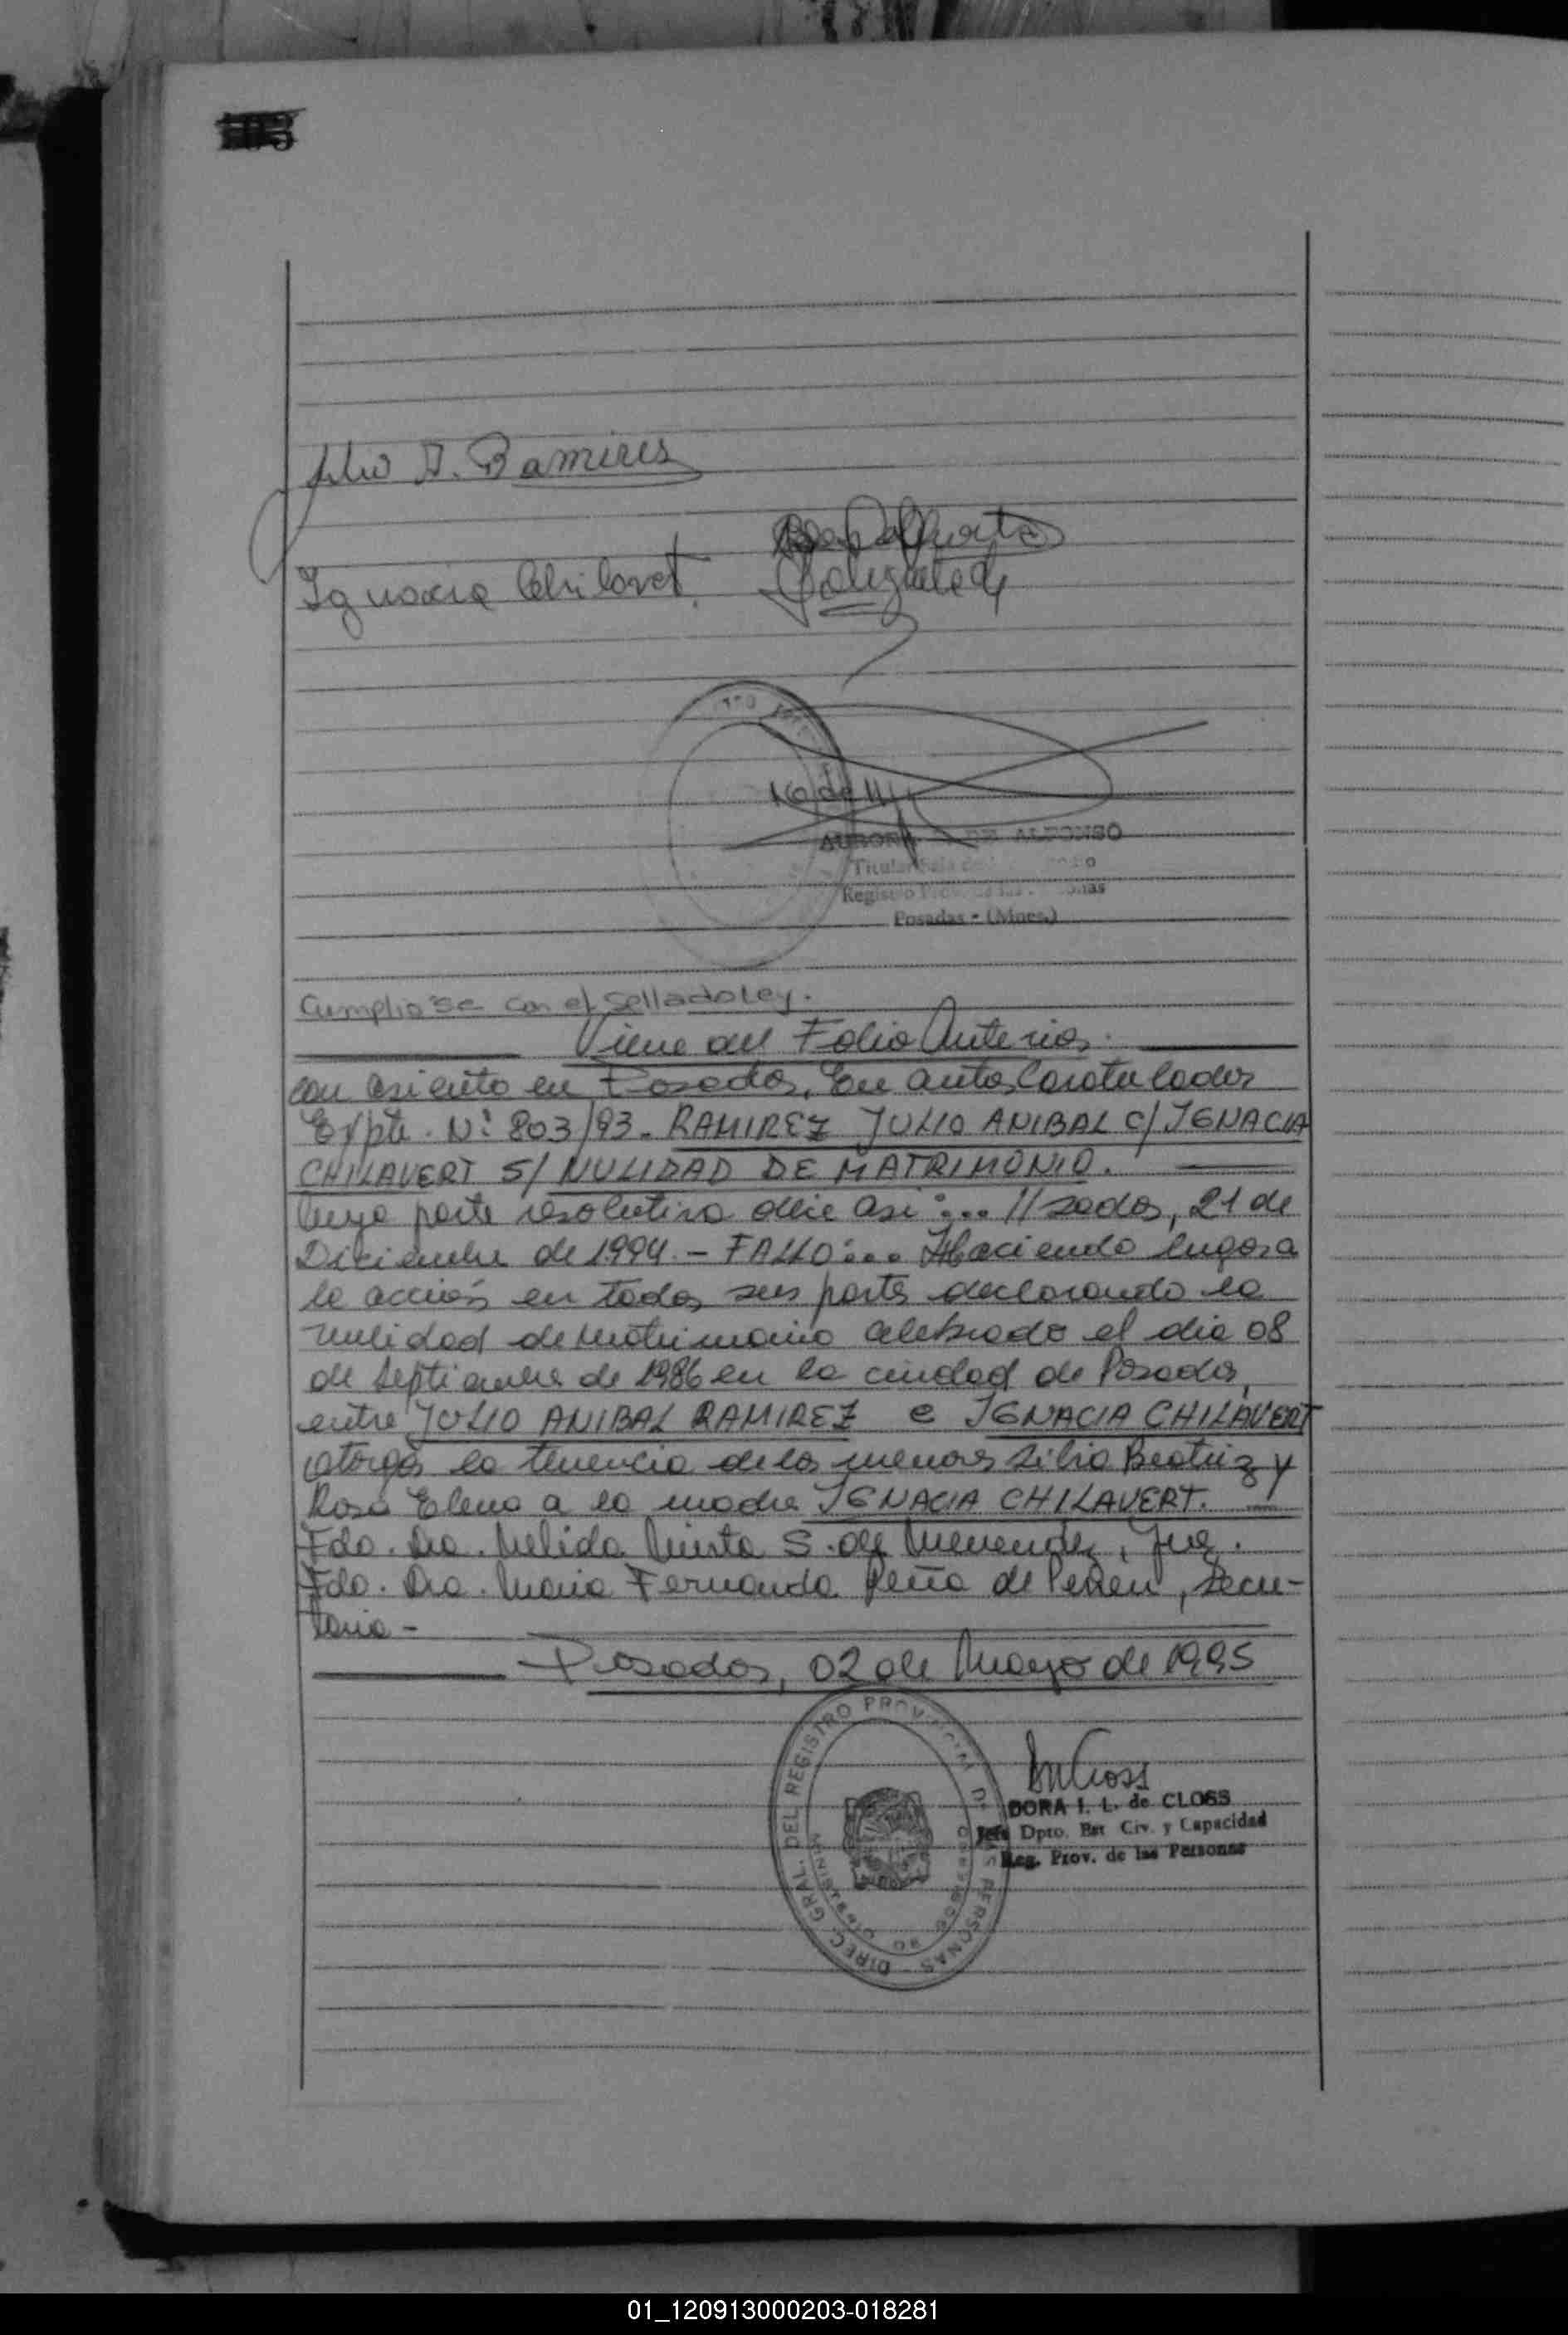 103
Julio A. Ramires
Ignacia Chilavert.
16 de
AURORA DE ALFONSO
Titular
Registro
Posadas - (Mnes.)
Cumplióse con el selladoley.
Viene del Folio Anterior.
con asiento en Posadas, En autos Caratulados
Expte. Nº 803/93. RAMIREZ JULIO ANIBAL C/ IGNACIA
CHILAVERT S/ NULIDAD DE MATRIMONIO.
Cuya parte resolutiva dice asi:... //sadas, 21 de
Diciembre de 1994.- FALLO:... Haciendo lugar a
la acción en todas sus partes declarando la
nulidad de matrimonio celebrado el dia 08
de Septiembre de 1986 en la ciudad de Posadas,
entre JULIO ANIBAL RAMIREZ e IGNACIA CHILAVERT
otorgar la tenencia de las menores Silvia Beatriz y
Rosa Elena a la madre IGNACIA CHILAVERT.
Fdo. Dra. Nelida S. de Menendez, Juez.
Fdo. Dra. Maria Fernanda Peña de , Secre-
taria -
Posadas, 02 de Mayo de 1995
DIREC. GRAL. DEL REGISTRO PROVINCIAL DE LAS PERSONAS
MINISTERIO DE GOBIERNO
DORA I. L. de CLOSS
Jefe Dpto. Est Civ. y Capacidad
Reg. Prov. de las Personas
01_120913000203-018281